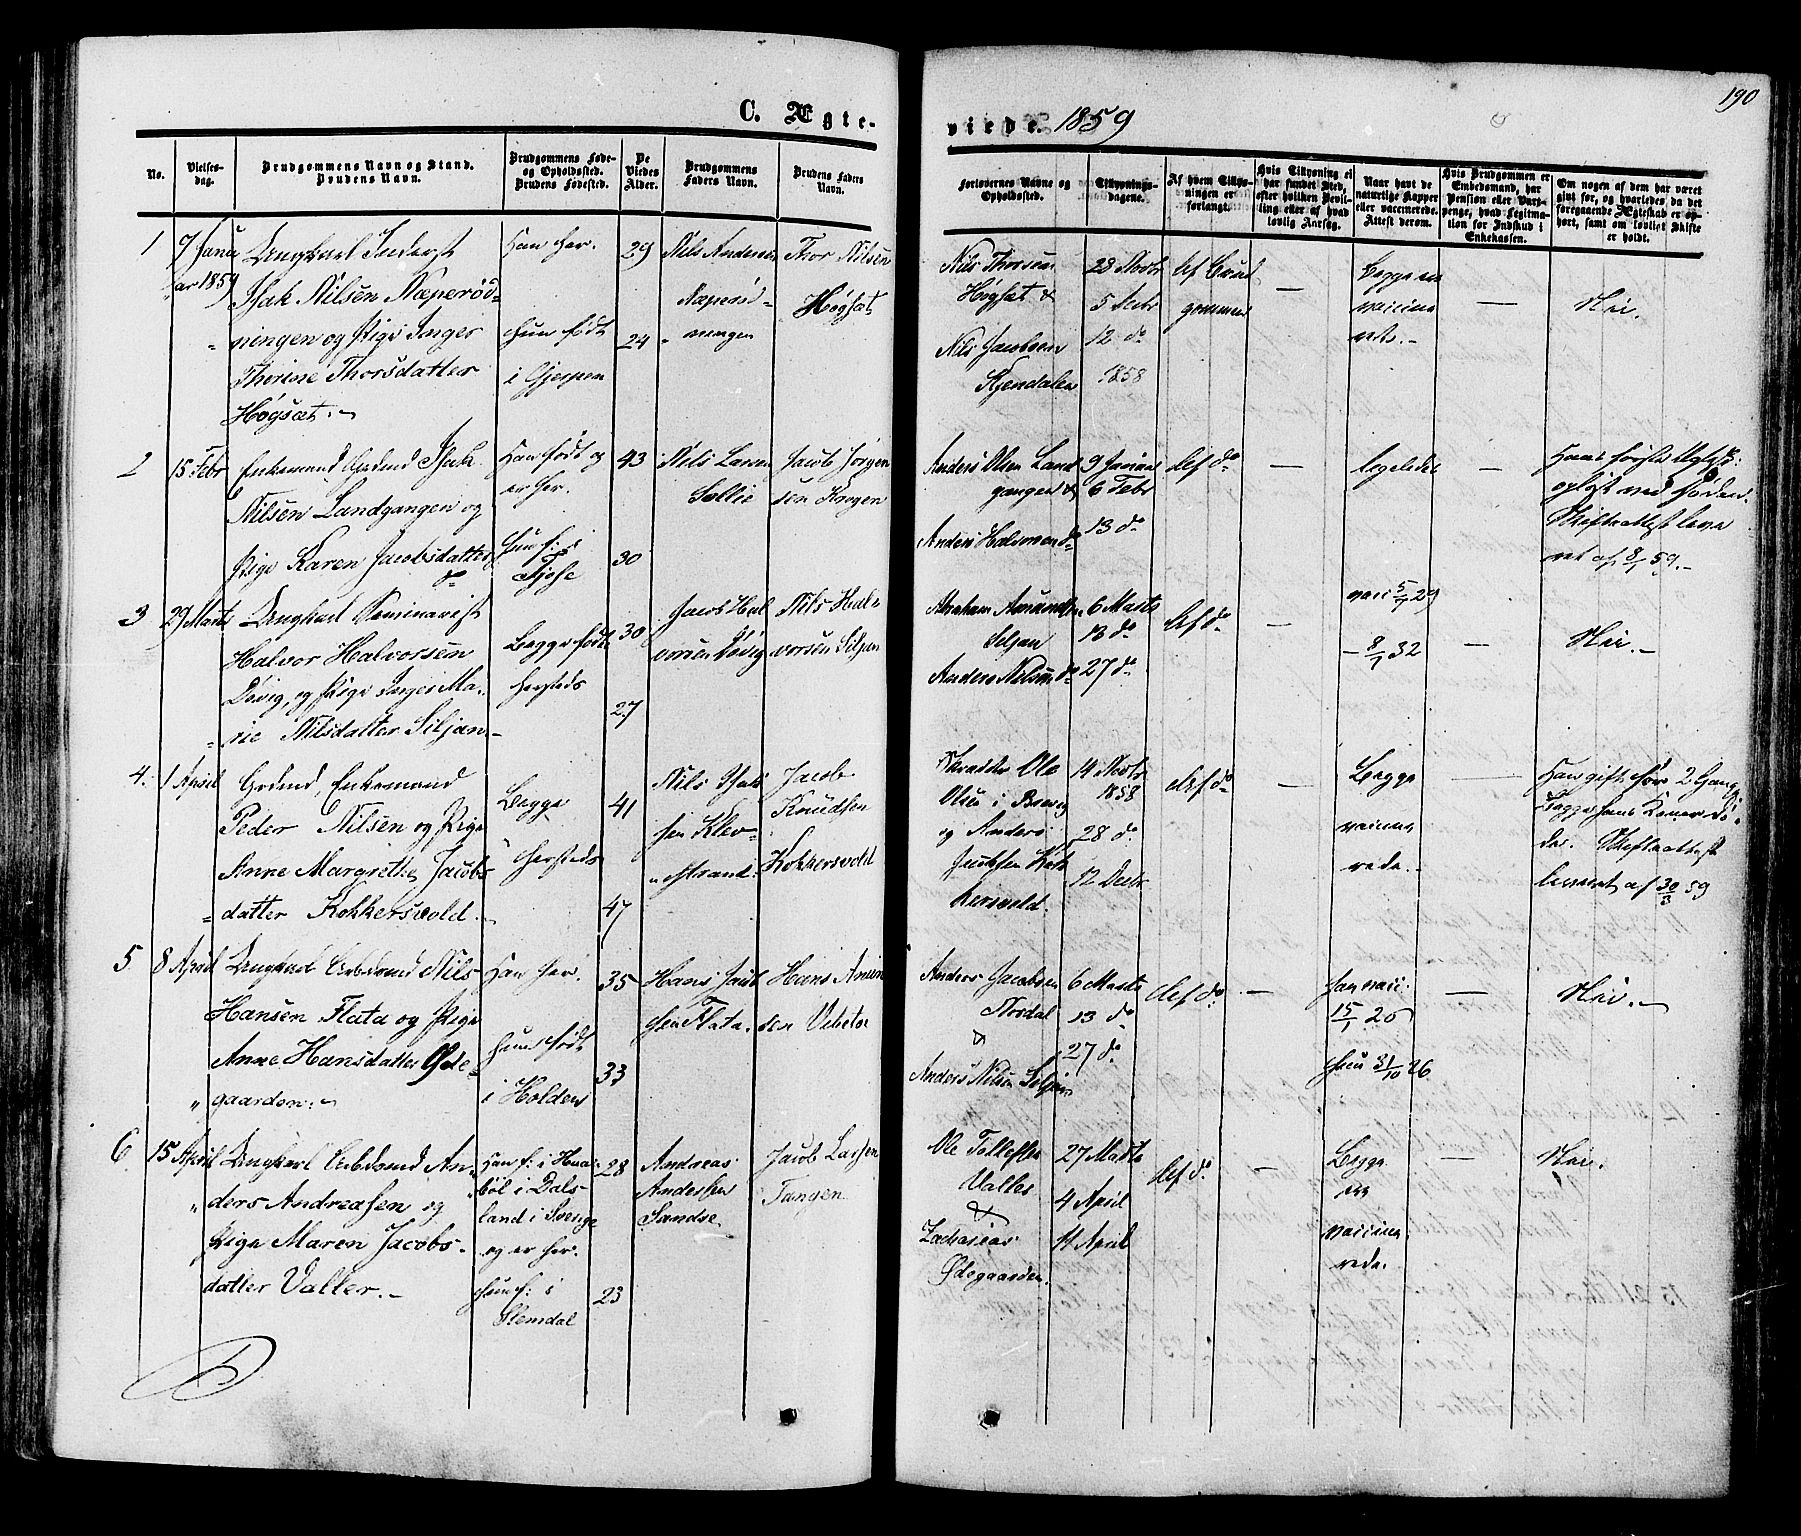 C. Ægte-
vierde. 1859
190
No.
Vielses-
dag.
Brudgommens Navn og Stand.
Brudens Navn.
Brudgommens Føde-
og Opholdssted.
Brudens Fødested.
De
Viedes
Alder.
Brudgommens
Faders Navn.
Brudens Faders
Navn.
Forlovernes Navne og
Opholdssted.
Tillysnings-
dagene.
Af hvem Tillys-
ningen er
forlangt.
Hvis Tillysning ei
har fundet Sted,
efter hvilken Bevil-
ling eller af hvad
lovlig Aarsag.
Naar havt de
naturlige Kopper
eller vaccinerede.
Attest derom.
Hvis Brudgommen er
Embedsmand, har
Pension eller Vart-
penge, hvad Legitima-
tion for Indskud i
Enkekassen.
Om nogen af dem har været
gift før, og hvorledes da det
foregaaende Ægteskab er op-
hørt, samt om lovligt Skifte
er holdt.
1
7 Janu
ar 1859
Ungkarl Inderst
Isak Nilsen Næperød-
ningen og Pige Inger
Therine Thorsdatter
Høgsæt.
Han her.
Hun født
i Gjerpen
29
24
Nils Andersen
Næperød-
ningen
Thor Nilsen
Høgsæt
Nils Thorsen
Høgsæt &
Nils Jacobsen
Kjendalen
28 Novbr
5 Decbr
12 do
1858
Af Brud
gommen
—
Begge ere
vaccine
rede.-
—
Nei.
2
15 Febr
Enkemand Grdmd Isak
Nilsen Landgangen og
Pige Karen Jacobsdatter
do
Han født og
er her.
Hun f: i
Hjose
43
30
Nils Larsen
Sollie
Jacob Jørgen
sen Krogen
Anders Olsen Land
gangen &
Anders Halvorsen do
9 Januar
6 Febr
13 do
Af do
—
ligeledes
—
Hans første Ægtesk:
opløst ved Døden.
Skifteattest leve
ret af 8/1 59.-
3
29 Marts
Ungkarl Seminarist
Halvor Halvorsen
Døvig, og Pige Inger Ma-
rie Nilsdatter Siljan.-
Begge født
hersteds
30
27
Jacob Hal
vorsen Døvig
Nils Hal-
vorsen Siljan
Abraham Amundsen
Siljan
Anders Nilsen do
6 Marts
13 do
27 do
Af do
—
vacc 5/7 29
- 8/7 32
—
Nei.-
4.
1 April
Grdmd, Enkemand
Peder Nilsen og Pige
Anne Margrethe Jacobs-
datter Kokkersvold.
Begge
hersteds
41
47
Nils Isak
sen Klev-
strand.
Jacob
Knudsen
Kokkersvold
Skrædder Ole
Olsen i Brevig
og Anders
Jacobsen Kok
kersvold.
14 Novbr
1858
28 do
12 Decbr.
Af do
Begge
vaccine
rede.-
—
Han gift før 2 Gange
Begge hans Koner dø-
de. Skifteattest
leveret af 30/3 59
5
8 April
Ungkarl Arbdsmd Nils
Hansen Flata og Pige
Anne Hansdatter Øde-
gaarden.-
Han her.
Hun født
i Holden
35
33
Hans Jacob
sen Flata.
Hans Anun
sen Vibeto
Anders Jacobsen
Nordal
&
Anders Nilsen Siljan
6 Marts
13 do
27 do
Af do
—
Han vacc:
15/1 25
Hun 31/10 26
—
Nei.-
6
15 April
Ungkarl Arbdsmd An-
ders Andreasen og
Pige Maren Jacobs-
datter Valler.-
Han f: i
bøl i Dals-
land i Sverige
og er her.
Hun f: i
Slemdal
28
23
Andreas
Andersen
Sandse
Jacob Larsen
Tangen
Ole Tollefsen
Valler
&
Zacharias
Ødegaarden.
27 Marts
4 April
11 April
Af do
—
Begge
ere
vaccine
rede.
—
Nei.